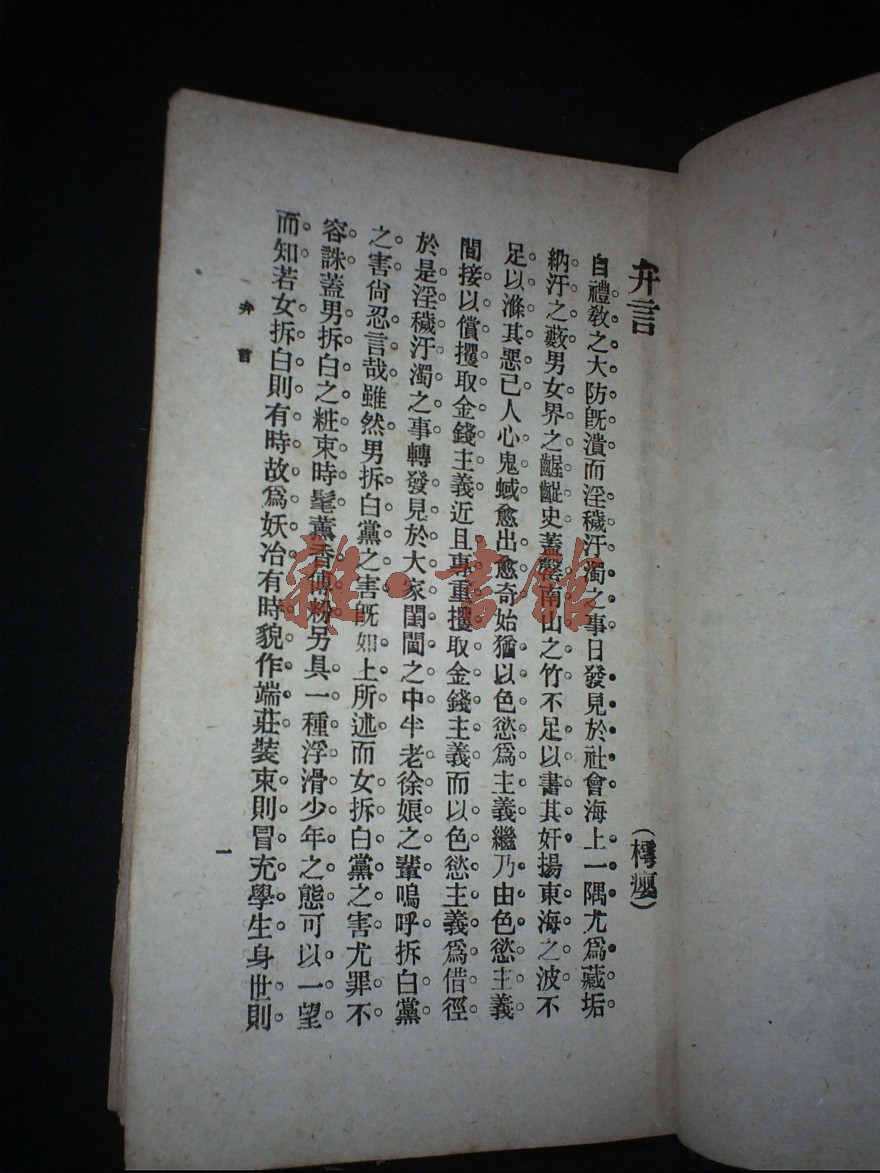 弁言
(樗癭)
自禮敎之大防旣潰而淫穢汙濁之事日發見於社會海上一隅尤爲藏垢
納汙之藪男女界之齷齪史蓋罄南山之竹不足以書其奸揚東海之波不
足以滌其惡已人心鬼蜮愈出愈奇始猶以色慾爲主義繼乃由色慾主義
間接以償攫取金錢主義近且專重攫取金錢主義而以色慾主義爲借徑
於是淫穢汙濁之事轉發見於大家閨閫之中半老徐娘之輩嗚呼拆白黨
之害尙忍言哉雖然男拆白黨之害旣如上所述而女拆白黨之害尤罪不
容誅蓋男拆白之粧束時髦薰香傅粉另具一種浮滑少年之態可以一望
而知若女拆白則有時故爲妖冶有時貌作端莊裝束則冒充學生身世則
弁言
一
雜·書館